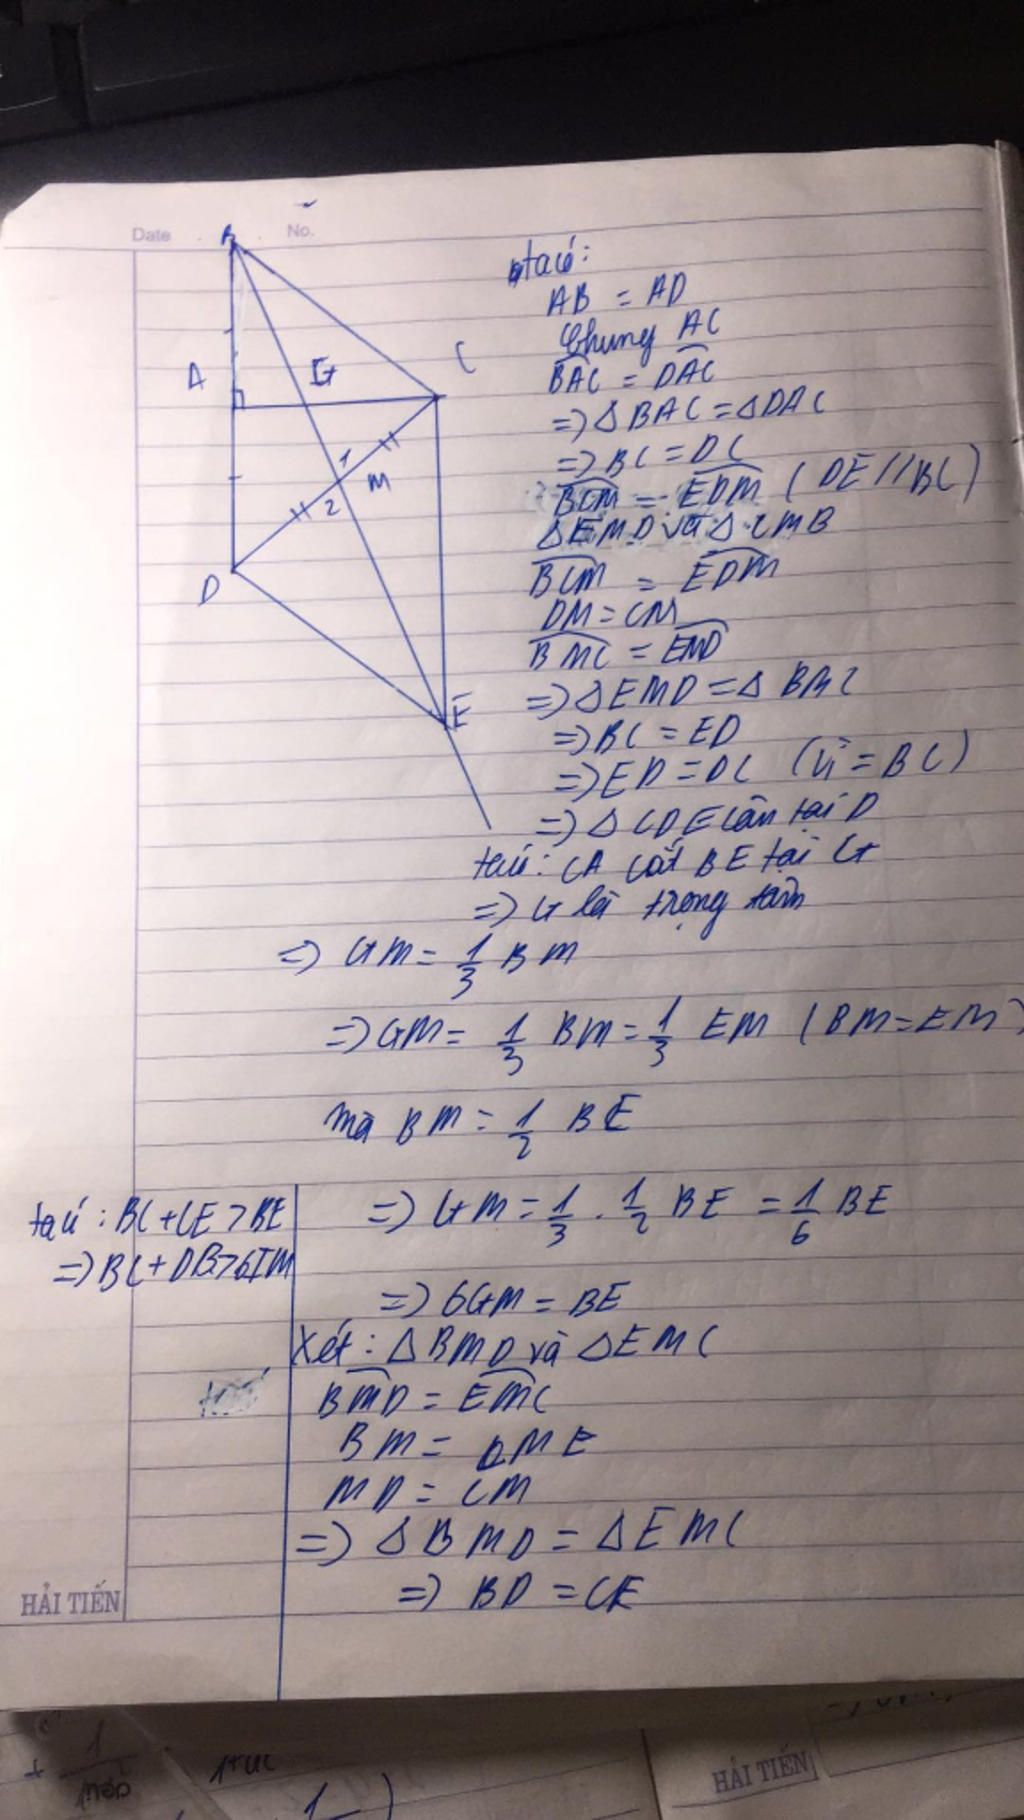 Date
No.
B
A
G
C
1
M
2
D
E
ta có:
AB = AD
Chung AC
BAC = DAC
=> Δ BAC = Δ DAC
=> BC = DC
BCM = EDM ( DE // BC )
Δ EMD và Δ CMB
BCM = EDM
DM = CM
BMC = EMD
=> Δ EMD = Δ BMC
=> BC = ED
=> ED = DC (vì = BC)
=> Δ CDE cân tại D
ta có: CA cắt BE tại G
=> G là trọng tâm
=> GM = 1/3 BM
=> GM = 1/3 BM = 1/3 EM ( BM = EM )
mà BM = 1/2 BE
=> GM = 1/3 . 1/2 BE = 1/6 BE
=> 6GM = BE
Xét : Δ BMD và Δ EMC
BMD = EMC
BM = ME
MD = CM
=> Δ BMD = Δ EMC
=> BD = CE
ta có : BC + CE > BE
=> BC + DB > 6IM
HẢI TIẾN
1
HẢI TIẾN